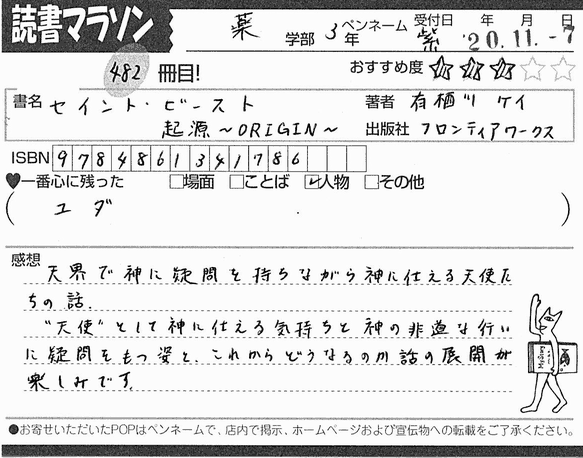 読書マラソン
薬 学部 3年 ペンネーム 紫 受付日 年 月 日
'20.11.-7
482 冊目! おすすめ度 ★★★☆☆
書名 セイント・ビースト 著者 有栖川 ケイ
起源~ORIGIN~ 出版社 フロンティアワークス
ISBN 9784861341786
♥一番心に残った □場面 □ことば ☑人物 □その他
( ユダ )
感想 天界で神に疑問を持ちながら神に仕える天使た
ちの話.
"天使"として神に仕える気持ちと神の非道な行い
に疑問をもつ姿と、これからどうなるのか話の展開が
楽しみです.
●お寄せいただいたPOPはペンネームで、店内で掲示、ホームページおよび宣伝物への転載をご了承ください。